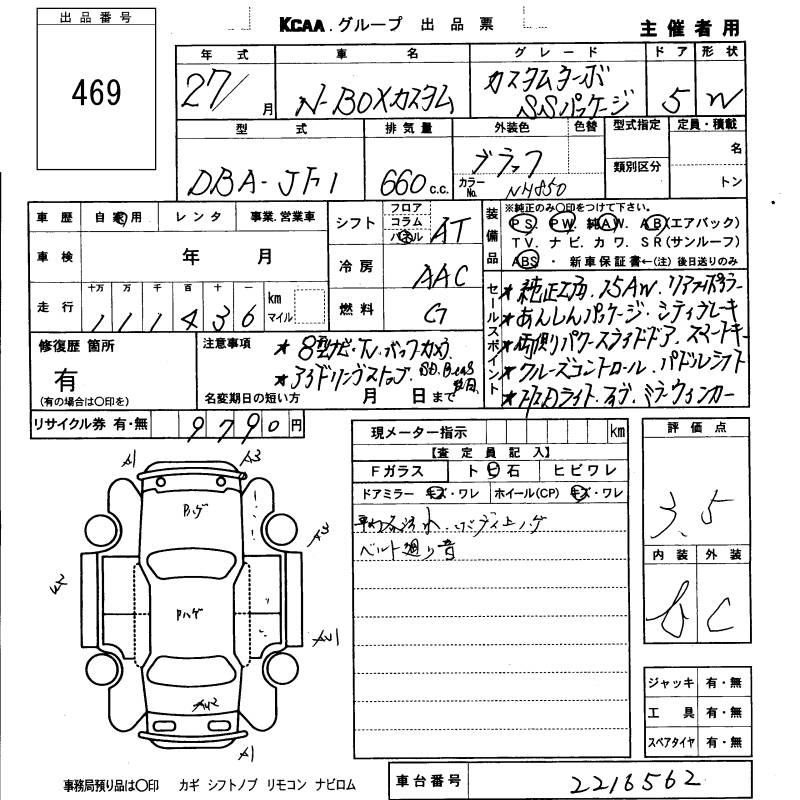 出品番号
469
KCAA.グループ 出品票
主催者用
年式 車名 グレード ドア 形状
27/ 月 N-BOXカスタム カスタムターボ SSパッケージ 5 W
型式 排気量 外装色 色替 型式指定 定員・積載
DBA-JF1 660 c.c. ブラック
カラーNo. NH850
類別区分 名
トン
車歴 自家用 レンタ 事業.営業車
車検 年 月
走行 十万 万 千 百 十 一 km マイル
1 1 1 4 3 6
シフト フロア コラム パネル AT
冷房 AAC
燃料 G
装備品 ※純正のみ○印をつけて下さい。
PS. PW. 純AW. AB(エアバック)
TV. ナビ. カワ. SR(サンルーフ)
ABS ・ 新車保証書←(注)後日送りのみ
セールスポイント
★純正エアロ.15AW.リアスポイラー
★あんしんパッケージ.シティブレーキ
★両側パワースライドドア.スマートキー
★クルーズコントロール.パドルシフト
★HIDライト.フォグ.ミラーウィンカー
修復歴 箇所
有
(有の場合は○印を)
注意事項
★8型ナビ.TV.バックカメラ
★アイドリングストップ
名変期日の短い方 月 日まで
リサイクル券 有・無 9790 円
現メーター指示 km
【査定員記入】
Fガラス トビ石 ヒビワレ
ドアミラー キズ・ワレ ホイール(CP) キズ・ワレ
ベルト廻り音
評価点
3.5
内装 外装
B C
A1 A3
Pハゲ
Pハゲ
AU1
AU2
A1
ジャッキ 有・無
工具 有・無
スペアタイヤ 有・無
事務局預り品は○印 カギ シフトノブ リモコン ナビロム
車台番号 2216562